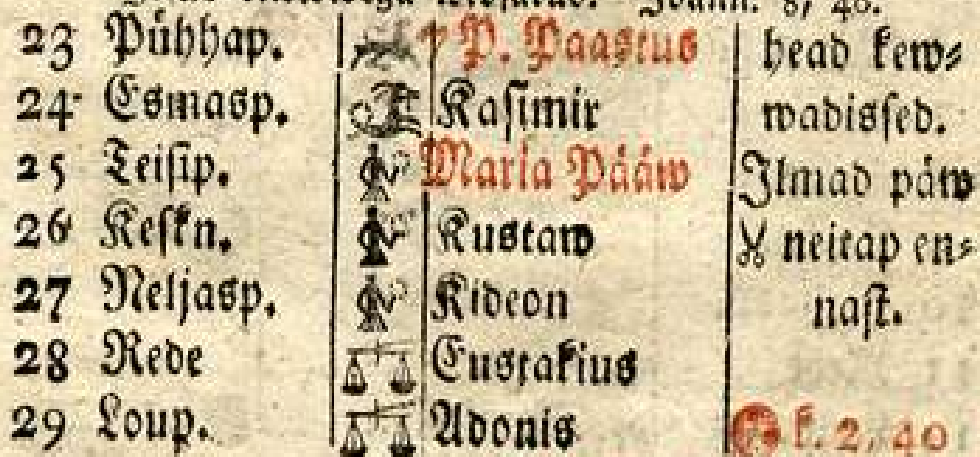 Joann. 8, 46.
23 Pühhap. P. Paastus head kew⸗
24 Esmasp. Kasimir wadissed.
25 Teisip. Maria Pääw Ilmad päw
26 Keskn. Kustaw neitap en⸗
27 Neljasp. Kideon nast.
28 Rede Eustakius
29 Loup. Adonis k. 2, 40